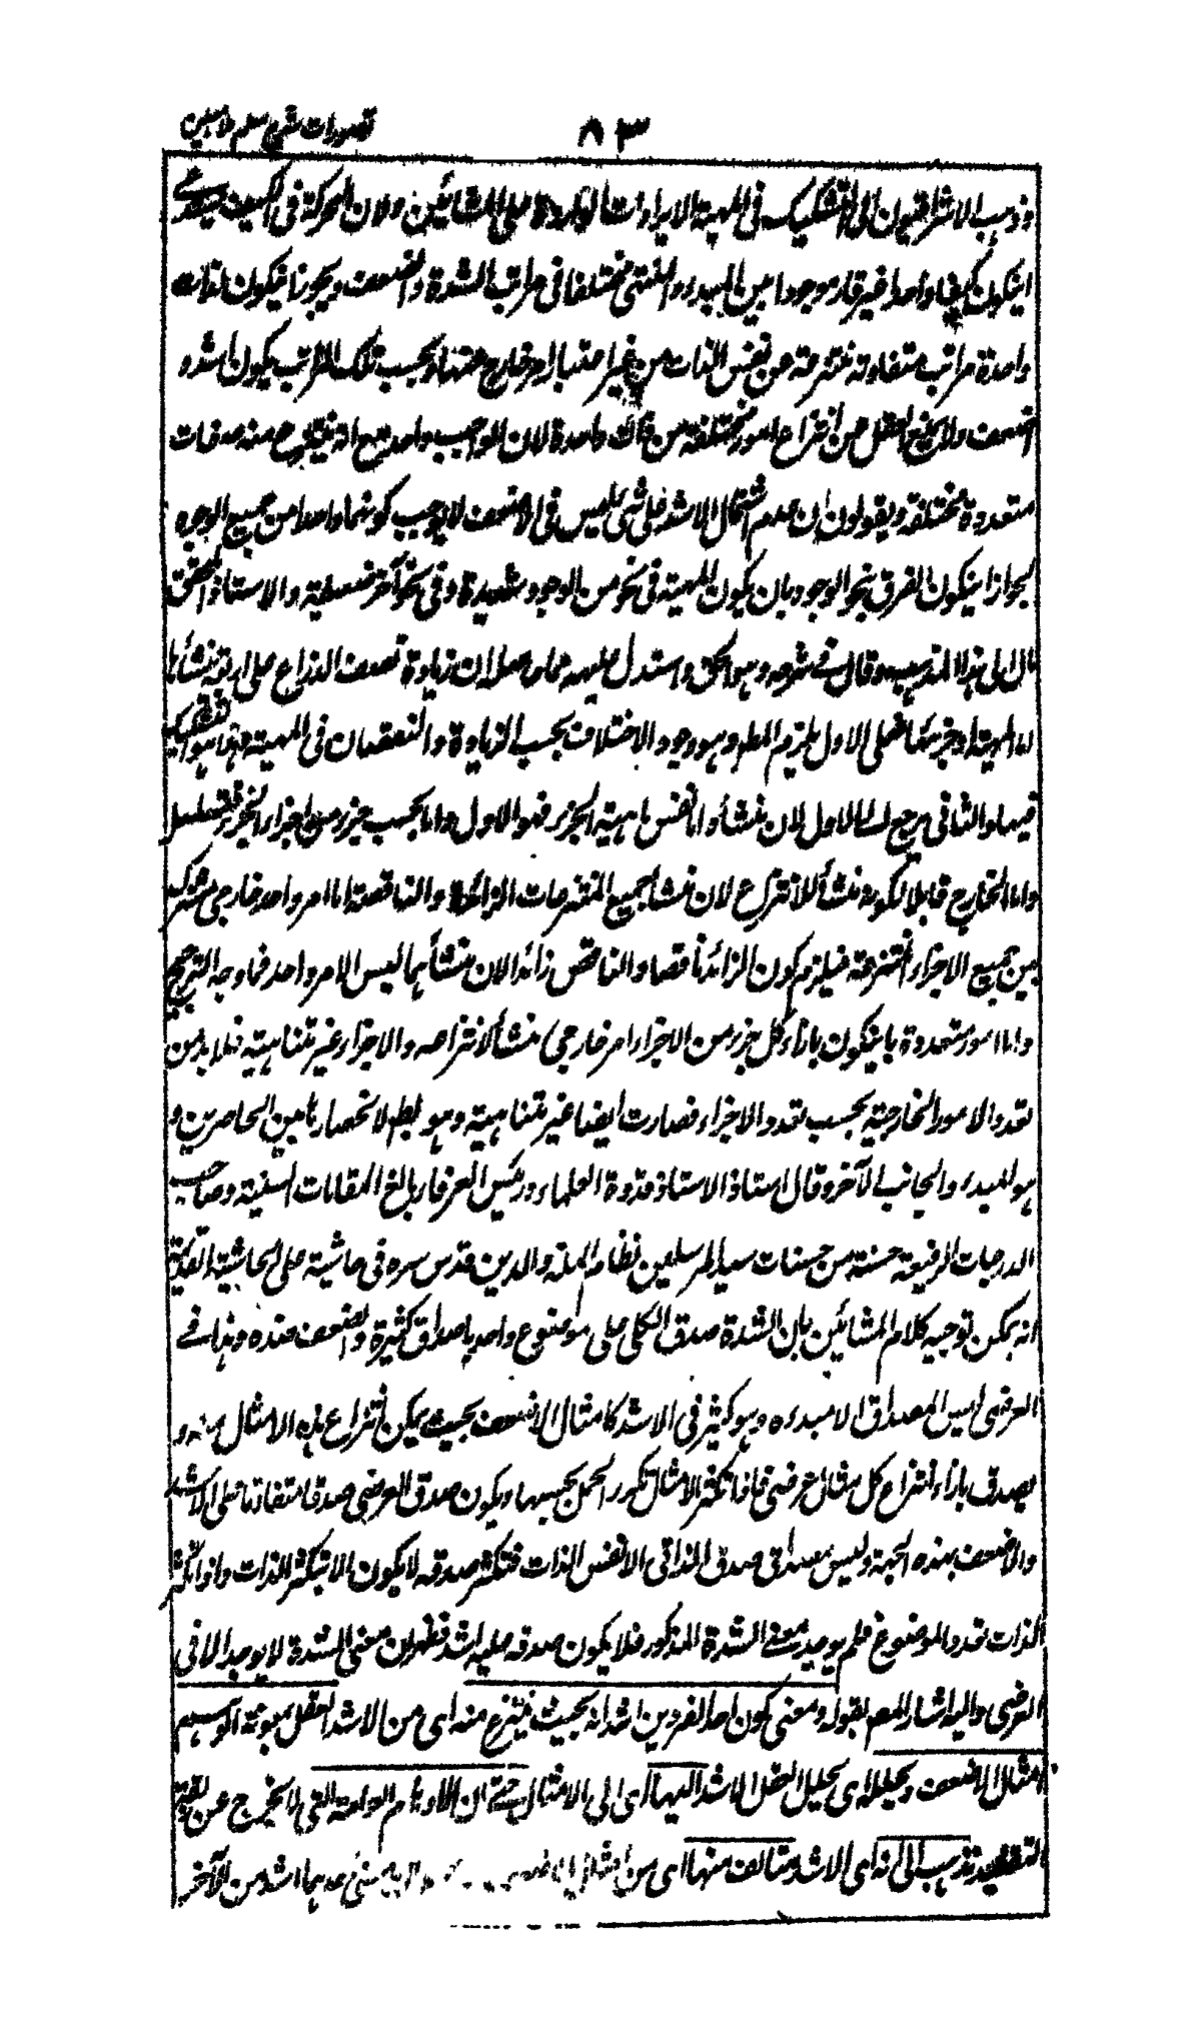 ٨٣ تصورات شرح سلم ملا مبين
وذهب الاشراقيون الى التشكيك فى المهية الايرادات الواردة على المشائين ولان الحركة فى الكيف يستدعى
ان يكون كيفا واحدا غير قار موجودا بين المبدء والمنتهى مختلفا فى مراتب الشدة والضعف ويجوزنا فيكون لذات
واحدة مراتب متفاوتة منتزعة عن نفس الذات من غير اعتبار امر خارج عنها وبحسب تلك المراتب يكون اشد و
اضعف ولا يمنع العقل من انتزاع امور مختلفة من ذات واحدة لان الواجب واحد مع انه ينتزع منه صفات
متعددة مختلفة ويقولون ان عدم اشتمال الاشد على شئ ليس فى الاضعف لا يوجب كونهما واحدا من جميع الوجوه
لجواز ان يكون الفرق بنحو الوجود بان يكون المهية فى نحو من الوجود شديدة وفى نحو آخر ضعيفة والاستاذ المحقق
مال الى هذا المذهب وقال فى شرحه وهو الحق واستدل عليه بما حاصله ان زيادة نصف الذراع على اربعة منشأها
اما المهية او جزئها فعلى الاول يلزم المطلوب وهو وجود الاختلاف بحسب الزيادة والنقصان فى المهية وهذا هو التشكيك
فيها والثانى يرجع الى الاول لان منشأه اما نفس ماهية الجزء فهو الاول واما بحسب جزء من اجزاء الجزء فيتسلسل
واما الخارج قابلا لكونه منشأ للانتزاع لان منشأ جميع المنتزعات الزائدة والناقصة اما امر واحد خارجى مشترك
بين جميع الاجزاء المنتزعة فيلزم كون الزائد ناقصا والناقص زائدا لان منشأهما ليس الا امر واحد فما وجه الترجيح
واما امور متعددة بان يكون بازاء كل جزء من الاجزاء امر خارجى منشأ لانتزاعه والاجزاء غير متناهية فلا بد من
تعدد الامور الخارجية بحسب تعدد الاجزاء فصارت ايضا غير متناهية وهو بط لانحصارها بين الحاصرين و
هو المبدء والجانب الآخر وقال استاذ الاستاذ قدوة العلماء ورئيس العرفاء بالغ المقامات السنية وصاحب
الدرجات الرفيعة حسنة من حسنات سيد المرسلين نظام الملة والدين قدس سره فى حاشية على الحاشية القديمة
انه يمكن توجيه كلام المشائين بان الشدة صدق الكلى على موضوع واحد باصداق كثيرة والضعف ضده وهذا فى
العرضى ليس المصداق الا مبدءه وهو كثير فى الاشد كامثال الاضعف بحيث يمكن انتزاع هذه الامثال منه و
يصدق بازاء انتزاع كل مثال عرضى فاذا تكثر الامثال تكرر الحمل بحسبها ويكون صدق العرضى صدقا متفاوتا على الاشد
والاضعف بهذه الجهة وليس مصداق صدق الذاتى الا نفس الذات فتكثر صدقه لا يكون الا بتكثر الذات واذا تكثر
الذات تعدد الموضوع فلم يوجد معنى الشدة المذكور فلا يكون صدقه عليه اشد فظهر ان معنى الشدة لا يوجد الا فى
العرضى واليه اشار المص بقوله ومعنى كون احد الفردين اشد انه بحيث ينتزع منه اى من الاشد العقل بمعونة الوهم
امثال الاضعف ويحلله اى يحليل العقل الاشد اليها اى الى الامثال حتى ان الاوهام العامة التى لا تخرج عن ربقة
التقليد تذهب الى انه اى الاشد متالف منها اى من امثال الاضعف معنى احدهما اشد من الآخر